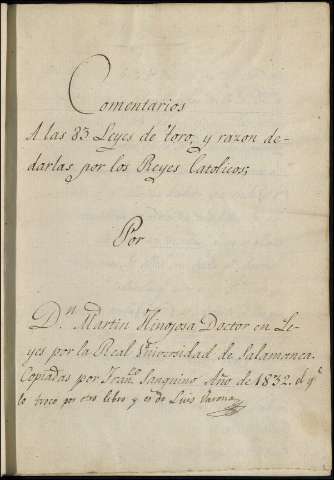 Comentarios
A las 83 Leyes de Toro, y razon de-
darlas por los Reyes Catolicos;
Por
Dn. Martin Hinojosa Doctor en Le-
yes por la Real Universidad de Salamanca.
Copiadas por Franco. Sanguino Año de 1832. el qe.
lo troco por otro libro y es de Luis Varona